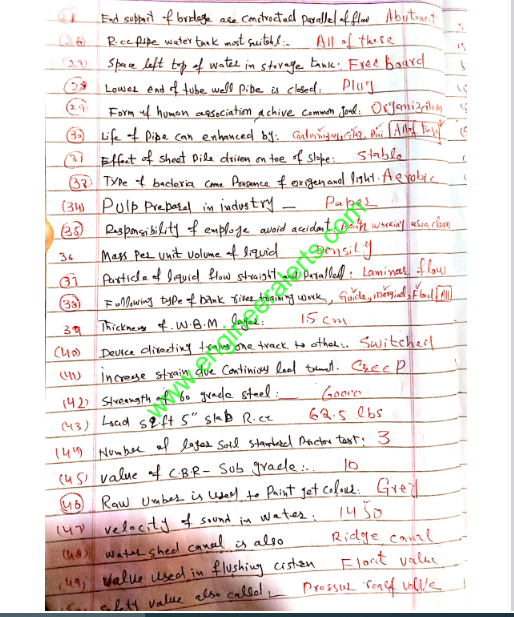 End support of bridge are constructed parallel of flow Abutment
(26) R.cc pipe water tank most suitabl:- All of these
(27) Space left top of water in storage tank: Free board
(28) Lower end of tube well pipe is closed: Plug
(29) Form of human association achive common goal: Organization
(30) Life of pipe can enhanced by: All of these
(31) Effect of sheet pile driven on toe of slope: stable
(32) Type of bacteria come Presence of oxigen and light. Aerobic
(34) Pulp prepared in industry — Paper
(35) Responsibility of employe avoid accident working area clean
36 Mass per unit volume of liquid Density
37 Particle of liquid flow straight and Paralled: Laminar flow
(38) Following type of bank river training work, Guide, marginal, Flood All
39 Thickness of W.B.M. layer: 15 cm
(40) Device directing trains one track to other:. Switched
(41) increase strain due continious load tunnel. Creep
(42) strength of 60 grade steel:— 60000
(43) Load sq.ft 5" slab R.cc 62.5 lbs
(44) Number of layer soil standard Proctor test: 3
(45) value of C.B.R- Sub grade:. 10
(46) Raw Umber is used to Paint get colour: Grey
(47) velocity of sound in water: 1450
(48) water shed canal is also Ridge canal
(49) value used in flushing cistern Float value
safety value also called:— Pressur relif valve
www.engineeralerts.com